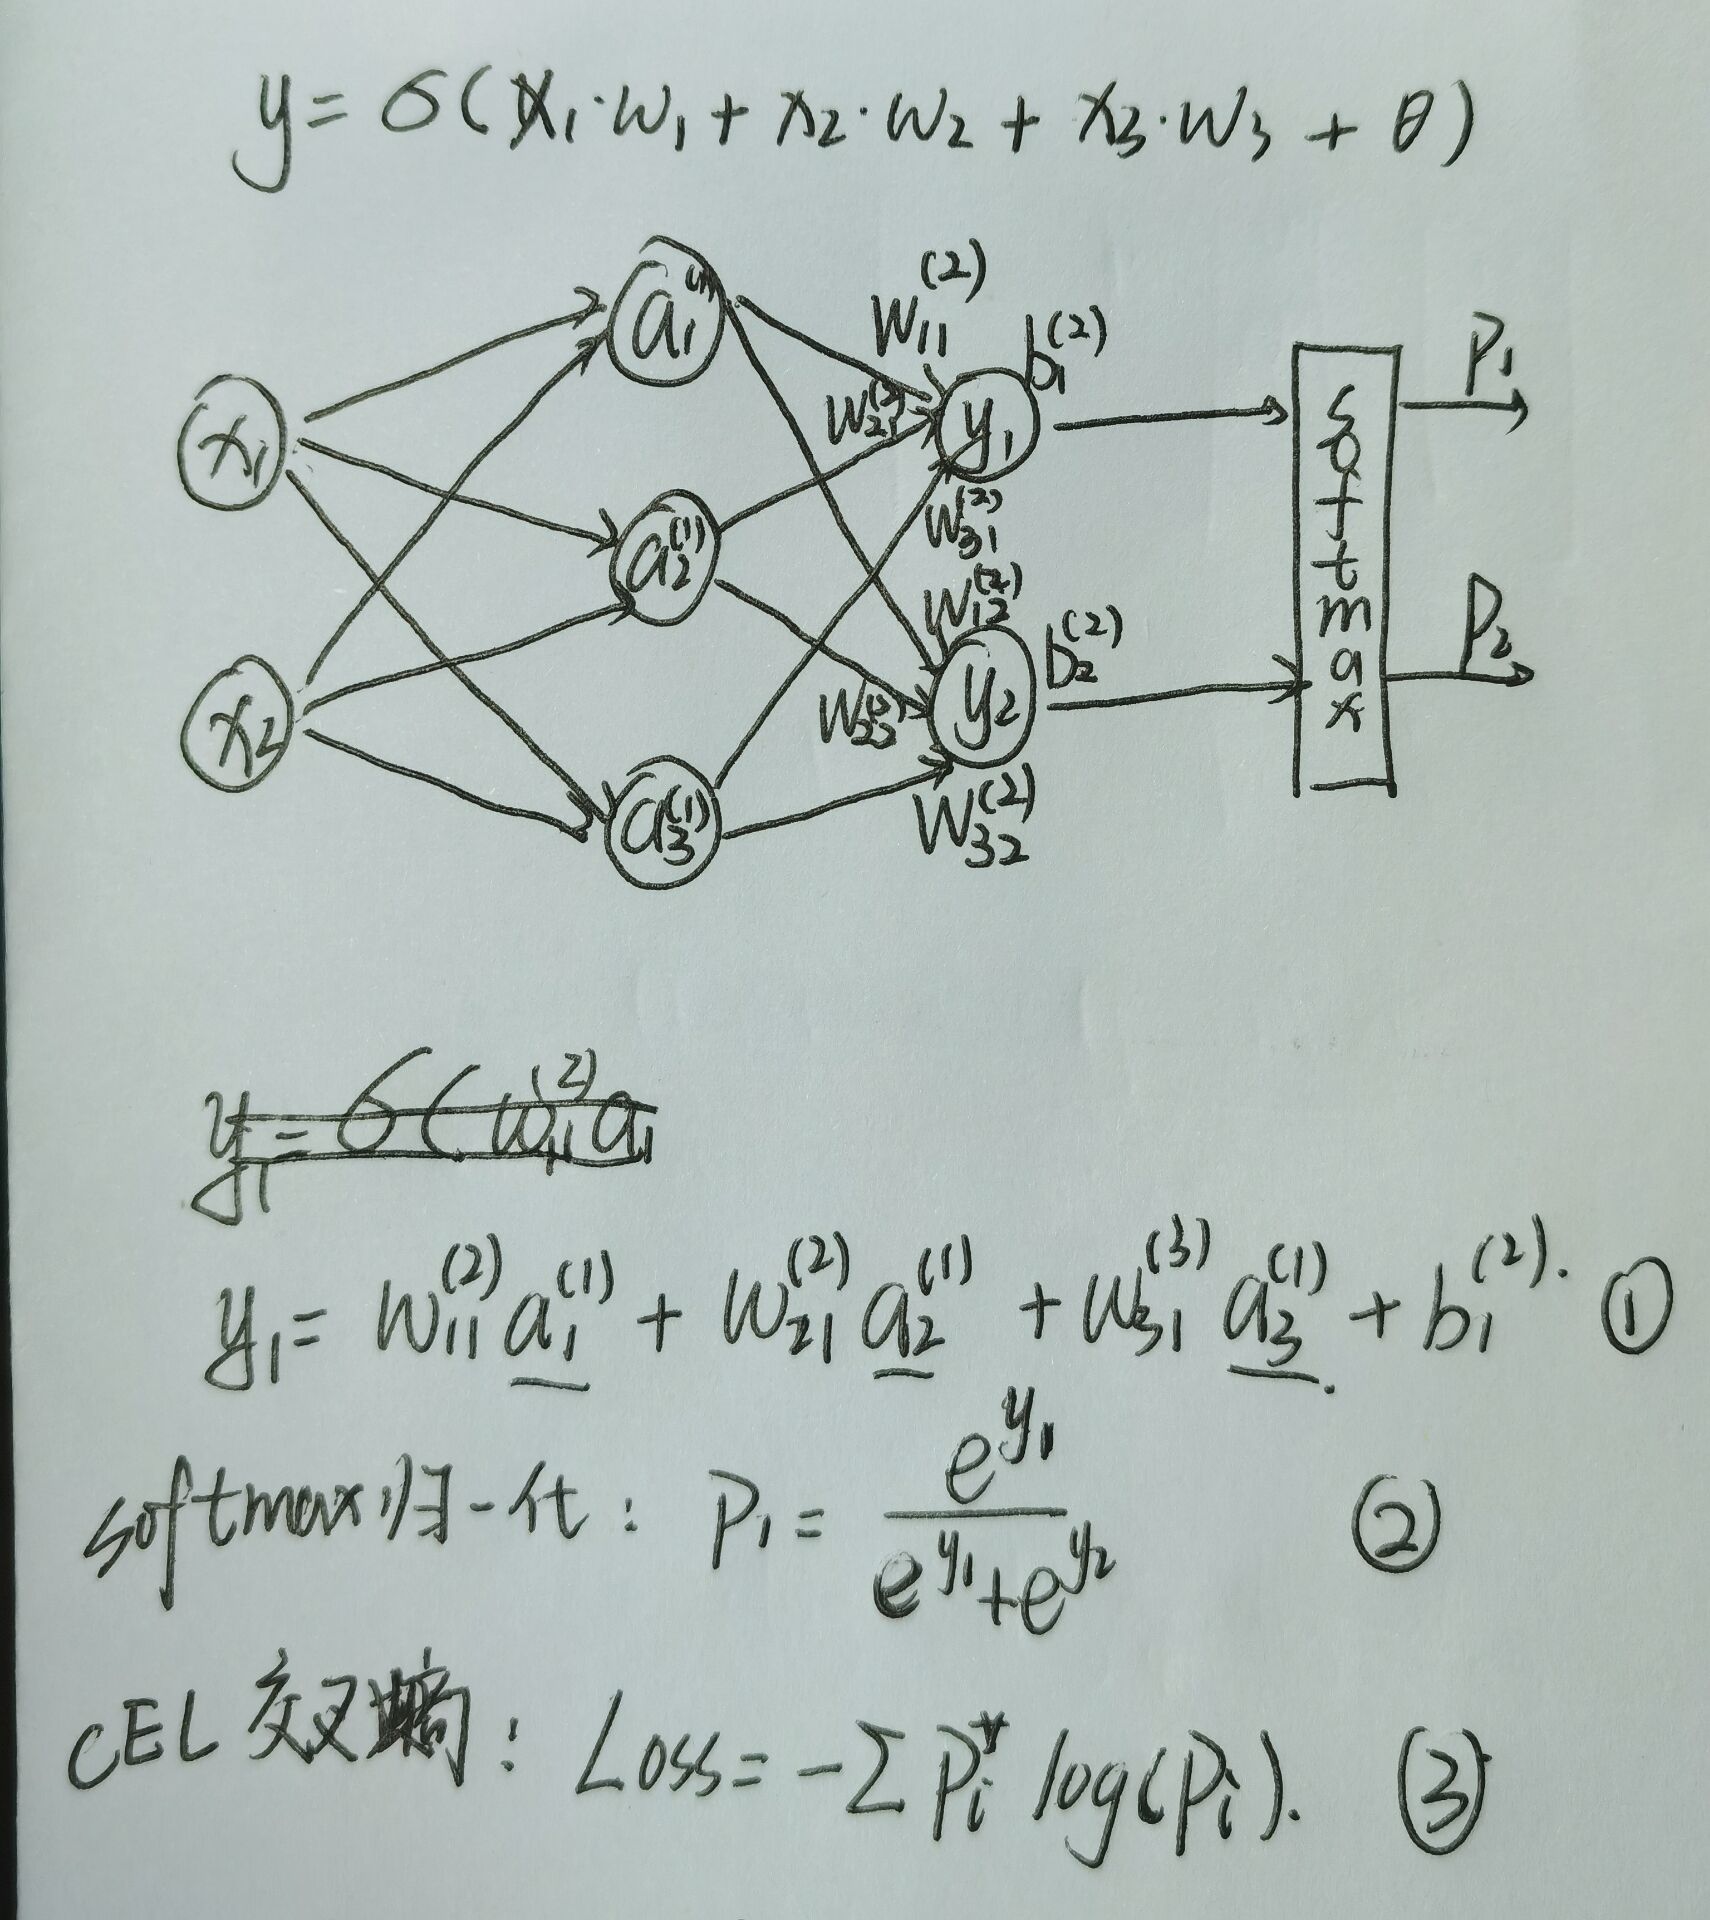 y = σ(x₁·w₁ + x₂·w₂ + x₃·w₃ + θ)
x₁
x₂
a₁⁽¹⁾
a₂⁽¹⁾
a₃⁽¹⁾
w₁₁⁽²⁾
w₂₁⁽²⁾
w₃₁⁽²⁾
b₁⁽²⁾
y₁
w₁₂⁽²⁾
w₃₂⁽²⁾
b₂⁽²⁾
y₂
softmax
P₁
P₂
y = σ( w₁₁⁽²⁾a₁
y₁
y₁ = w₁₁⁽²⁾a₁⁽¹⁾ + w₂₁⁽²⁾a₂⁽¹⁾ + w₃₁⁽³⁾a₃⁽¹⁾ + b₁⁽²⁾. ①
softmax归一化: P₁ = e^y₁ / (e^y₁ + e^y₂) ②
CEL 交叉熵: Loss = -Σ Pᵢ* log(Pᵢ). ③